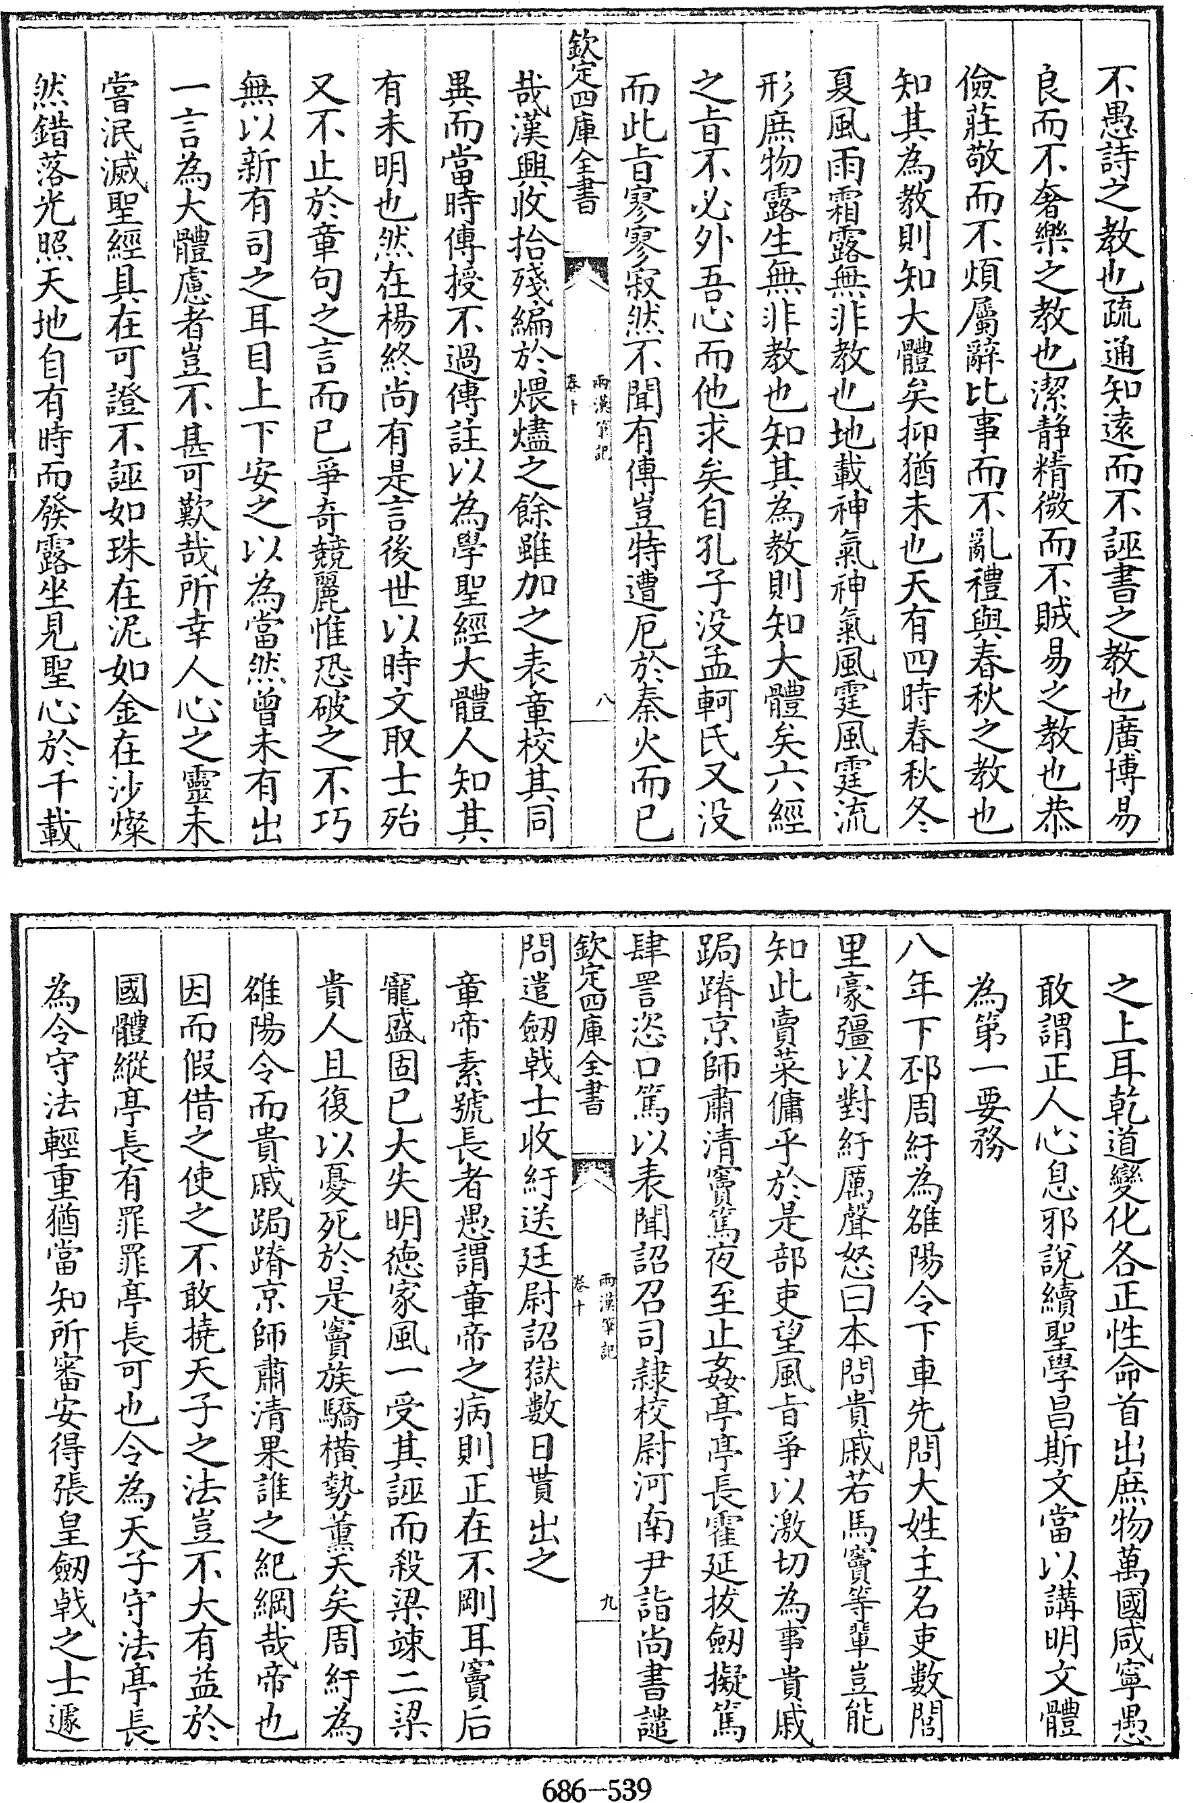 不愚詩之教也疏通知遠而不誣書之教也廣博易
良而不奢樂之教也潔静精微而不賊易之教也恭
儉莊敬而不煩屬辭比事而不亂禮與春秋之教也
知其為教則知大體矣抑猶未也天有四時春秋冬
夏風雨霜露無非教也地載神氣神氣風霆風霆流
形庶物露生無非教也知其為教則知大體矣六經
之旨不必外吾心而他求矣自孔子没孟軻氏又没
而此旨寥寥寂然不聞有傳豈特遭厄於秦火而已
欽定四庫全書
兩漢筆記
卷十
八
哉漢興收拾殘編於煨燼之餘雖加之表章校其同
異而當時傳授不過傳註以為學聖經大體人知其
有未明也然在楊終尚有是言後世以時文取士殆
又不止於章句之言而已爭奇競麗惟恐破之不巧
無以新有司之耳目上下安之以為當然曾未有出
一言為大體慮者豈不甚可歎哉所幸人心之靈未
嘗泯滅聖經具在可證不誣如珠在泥如金在沙燦
然錯落光照天地自有時而發露坐見聖心於千載
之上耳乾道變化各正性命首出庶物萬國咸寧愚
敢謂正人心息邪說續聖學昌斯文當以講明文體
為第一要務
八年下邳周紆為雒陽令下車先問大姓主名吏數閭
里豪彊以對紆厲聲怒曰本問貴戚若馬竇等輩豈能
知此賣菜傭乎於是部吏望風旨爭以激切為事貴戚
跼蹐京師肅清竇篤夜至止姦亭亭長霍延拔劒擬篤
肆詈恣口篤以表聞詔召司隷校尉河南尹詣尚書譴
欽定四庫全書
兩漢筆記
卷十
九
問遣劒戟士收紆送廷尉詔獄數日貰出之
章帝素號長者愚謂章帝之病則正在不剛耳竇后
寵盛固已大失明德家風一受其誣而殺梁竦二梁
貴人且復以憂死於是竇族驕橫勢薰天矣周紆為
雒陽令而貴戚跼蹐京師肅清果誰之紀綱哉帝也
因而假借之使之不敢撓天子之法豈不大有益於
國體縱亭長有罪罪亭長可也令為天子守法亭長
為令守法輕重猶當知所審安得張皇劒戟之士遽
686-539